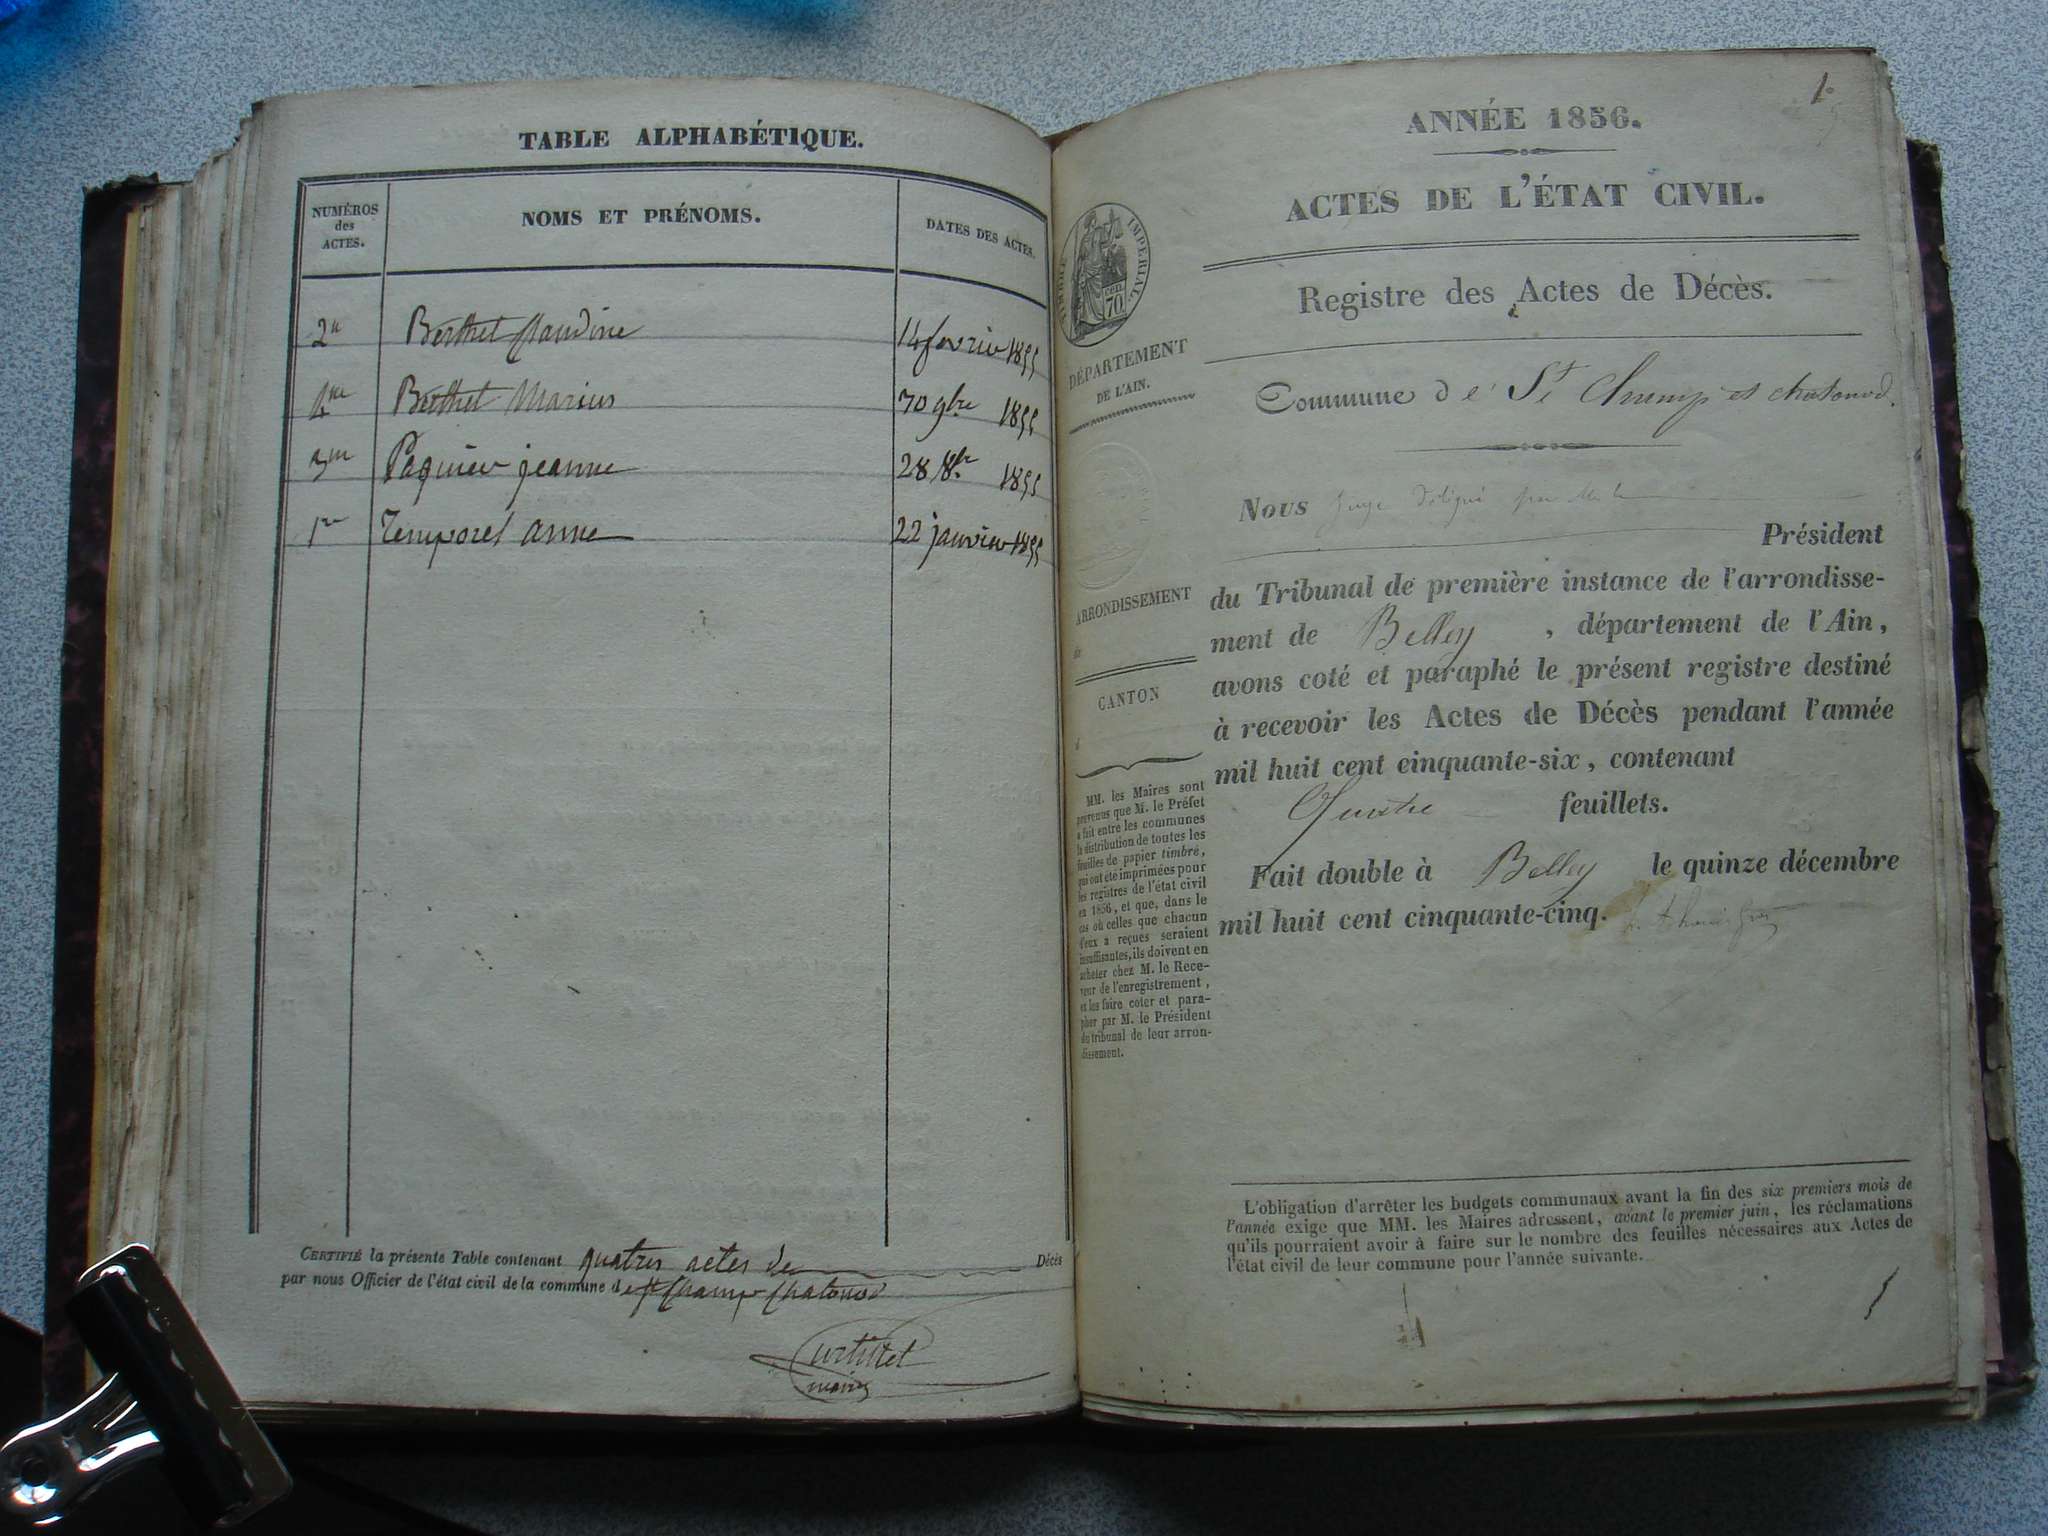 TABLE ALPHABÉTIQUE.
NUMÉROS
des
ACTES.
NOMS ET PRÉNOMS.
DATES DES ACTES.
Berthet Claudine
14 fevrier 1855
Berthet Marius
30 9bre 1855
Paquier jeanne
28 8bre 1855
Temporel anne
22 janvier 1855
CERTIFIÉ la présente Table contenant quatres actes de Décès
par nous Officier de l'état civil de la commune de St Champ Chatonod
maire
1
ANNÉE 1856.
ACTES DE L'ÉTAT CIVIL.
TIMBRE IMPÉRIAL.
CEN.
70
Registre des Actes de Décès.
DÉPARTEMENT
DE L'AIN.
Commune de St Champ et chatonod.
Nous juge délégué par
Président
du Tribunal de première instance de l'arrondisse-
ment de Belley, département de l'Ain,
avons coté et paraphé le présent registre destiné
à recevoir les Actes de Décès pendant l'année
mil huit cent cinquante-six, contenant
Quatre feuillets.
Fait double à Belley le quinze décembre
mil huit cent cinquante-cinq.
ARRONDISSEMENT
de
CANTON
d
MM. les Maires sont
prévenus que M. le Préfet
a fait entre les communes
la distribution de toutes les
feuilles de papier timbré,
qui ont été imprimées pour
les registres de l'état civil
en 1856, et que, dans le
cas où celles que chacun
d'eux a reçues seraient
insuffisantes, ils doivent en
acheter chez M. le Rece-
veur de l'enregistrement,
et les faire coter et para-
pher par M. le Président
du tribunal de leur arron-
dissement.
L'obligation d'arrêter les budgets communaux avant la fin des six premiers mois de
l'année exige que MM. les Maires adressent, avant le premier juin, les réclamations
qu'ils pourraient avoir à faire sur le nombre des feuilles nécessaires aux Actes de
l'état civil de leur commune pour l'année suivante.